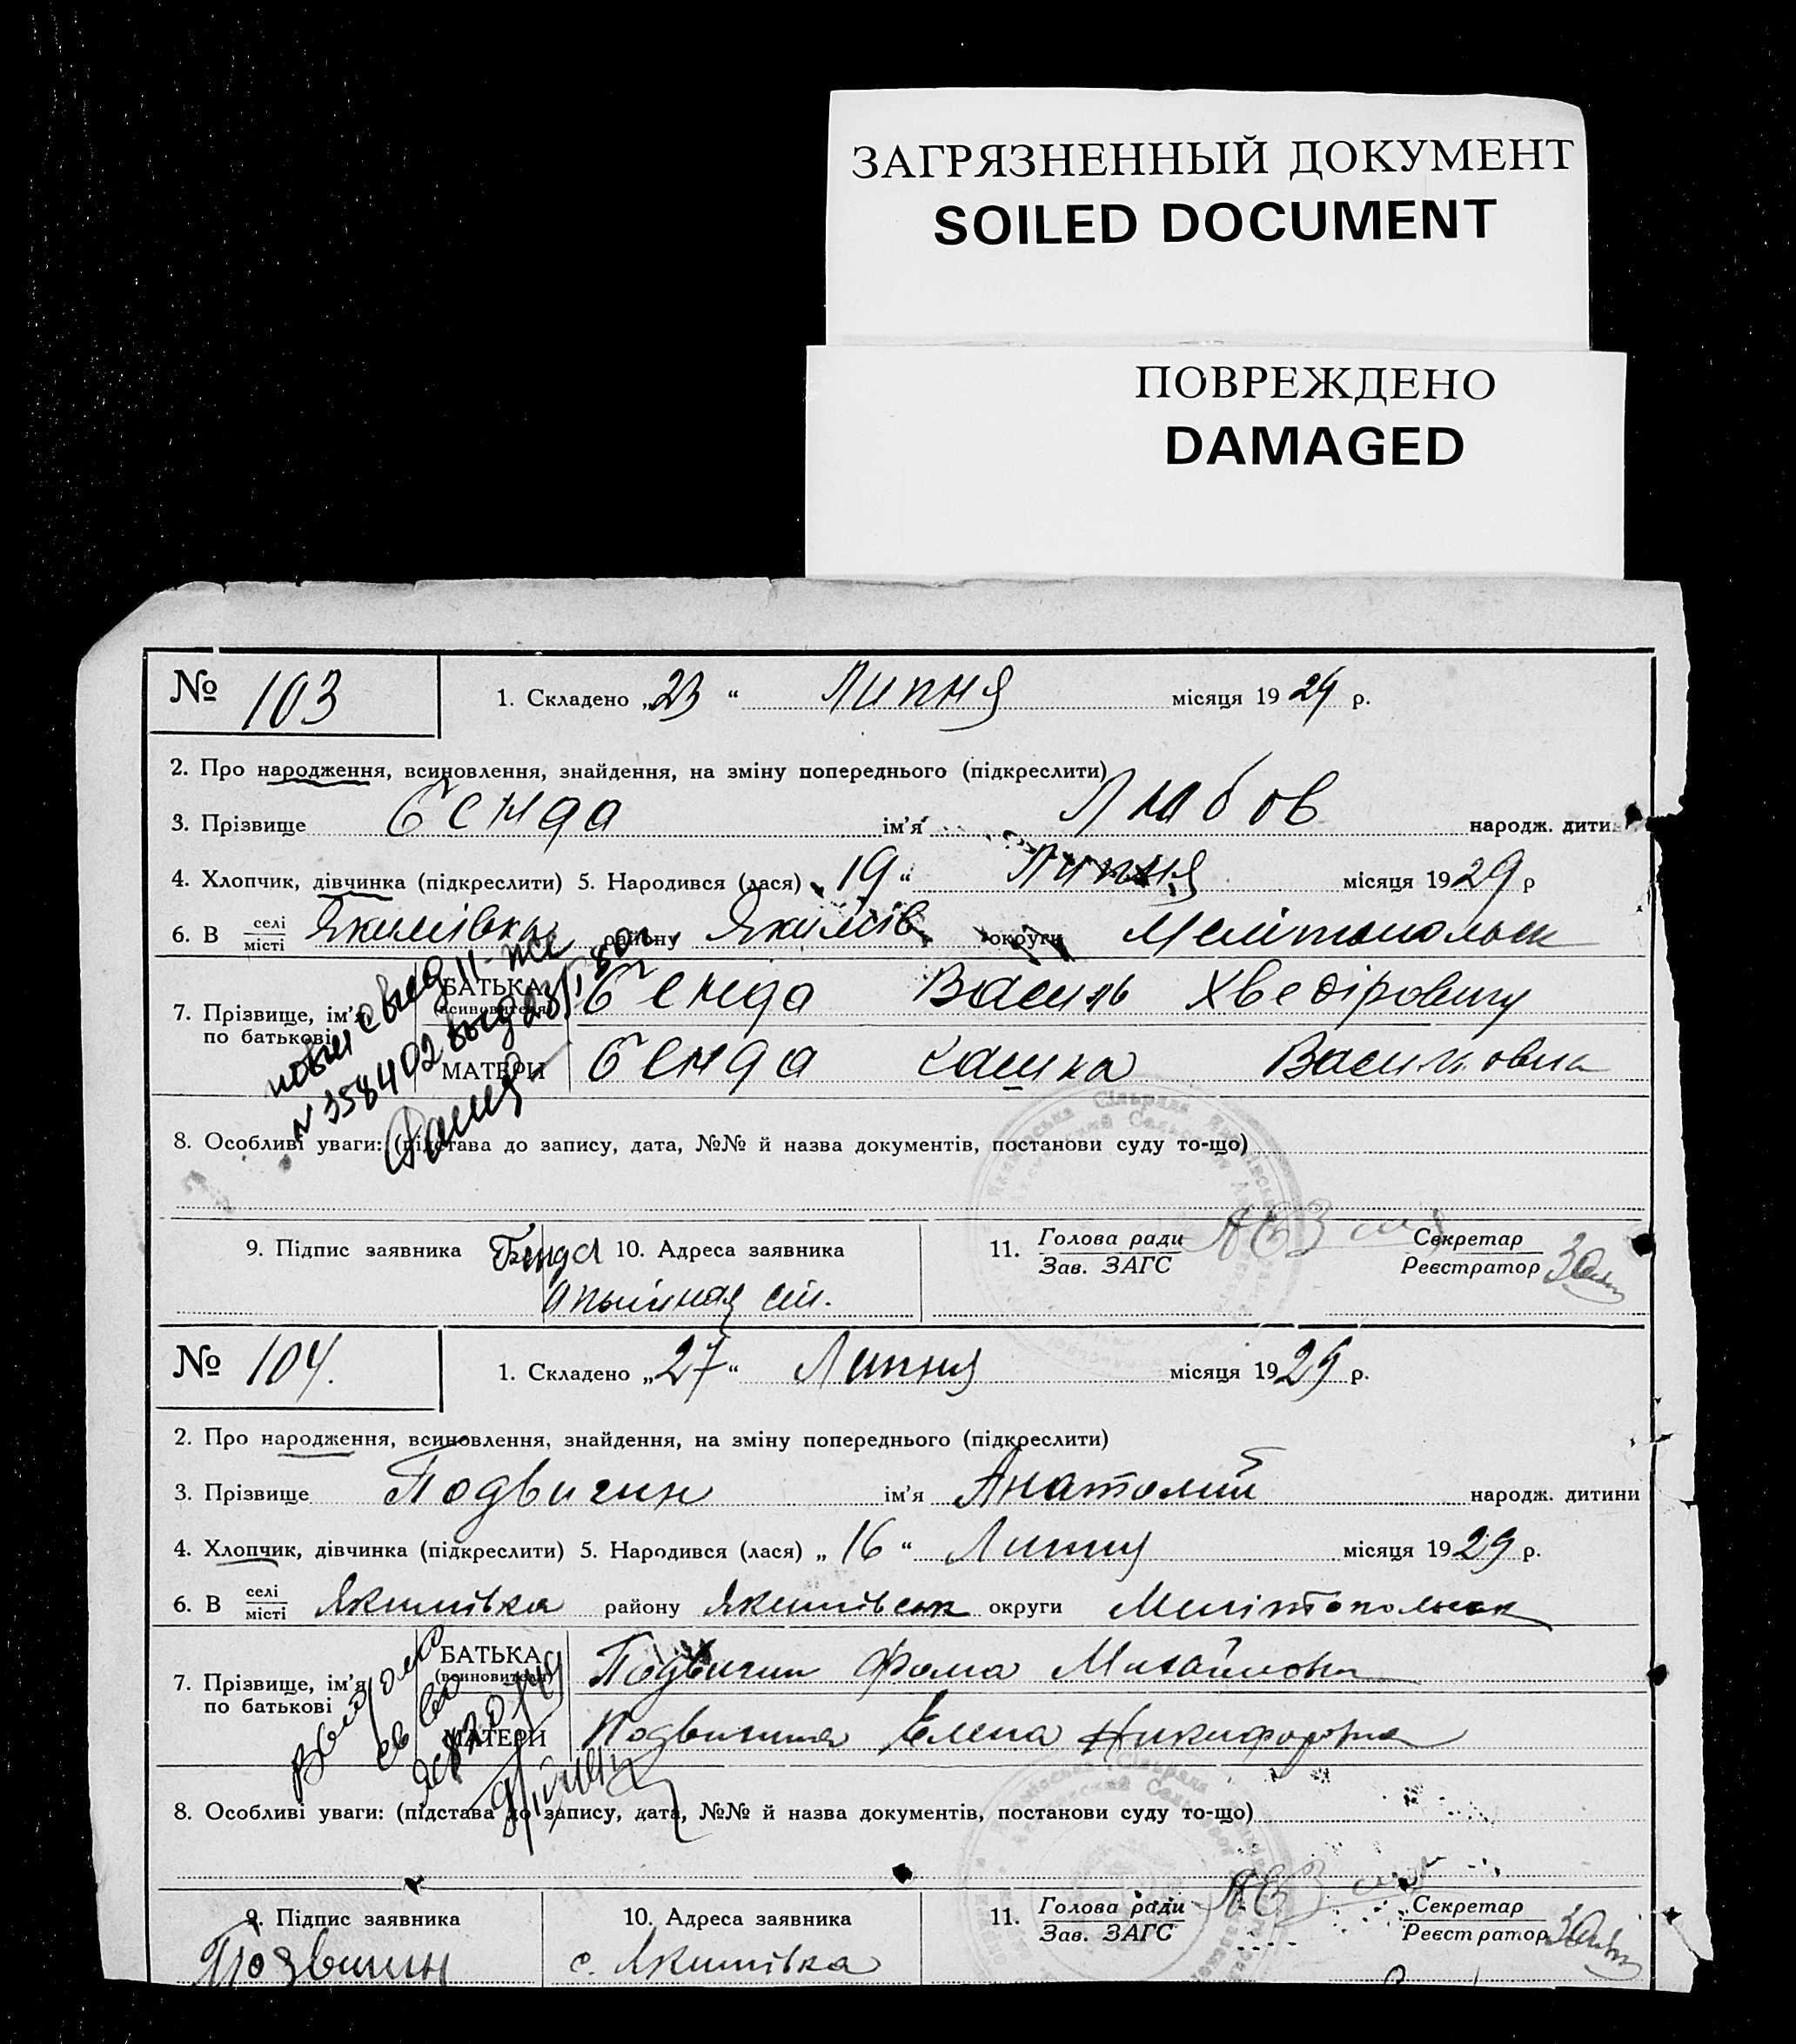 ЗАГРЯЗНЕННЫЙ ДОКУМЕНТ
SOILED DOCUMENT
ПОВРЕЖДЕНО
DAMAGED
№ 103 1. Складено „23“ Липня місяця 1929 р.
2. Про народження, всиновлення, знайдення, на зміну попереднього (підкреслити)
3. Прізвище Бенда ім'я Любов народж. дитин
4. Хлопчик, дівчинка (підкреслити) 5. Народився (лася) „19“ Липня місяця 1929 р
6. В селі/місті Якимівка району Якимів округи Мелітопольск
7. Прізвище, ім'я по батькові БАТЬКА (всиновителя) Бенда Василь Хведірович
МАТЕРИ Бенда Васильовна
8. Особливі уваги: (підстава до запису, дата, №№ й назва документів, постанови суду то-що)
9. Підпис заявника Бенда 10. Адреса заявника 11. Голова ради/Зав. ЗАГС Секретар/Реєстратор
№ 104. 1. Складено „27“ Липня місяця 1929 р.
2. Про народження, всиновлення, знайдення, на зміну попереднього (підкреслити)
3. Прізвище Подвигин ім'я Анатолий народж. дитини
4. Хлопчик, дівчинка (підкреслити) 5. Народився (лася) „16“ Липня місяця 1929 р.
6. В селі/місті Якимівка району Якимівськ округи Мелітопольськ
7. Прізвище, ім'я по батькові БАТЬКА (всиновителя) Подвигин Фома Михайлович
МАТЕРИ Подвигина Елена Никифоровна
8. Особливі уваги: (підстава до запису, дата, №№ й назва документів, постанови суду то-що)
9. Підпис заявника 10. Адреса заявника 11. Голова ради/Зав. ЗАГС Секретар/Реєстратор
Подвигин с. Якимівка